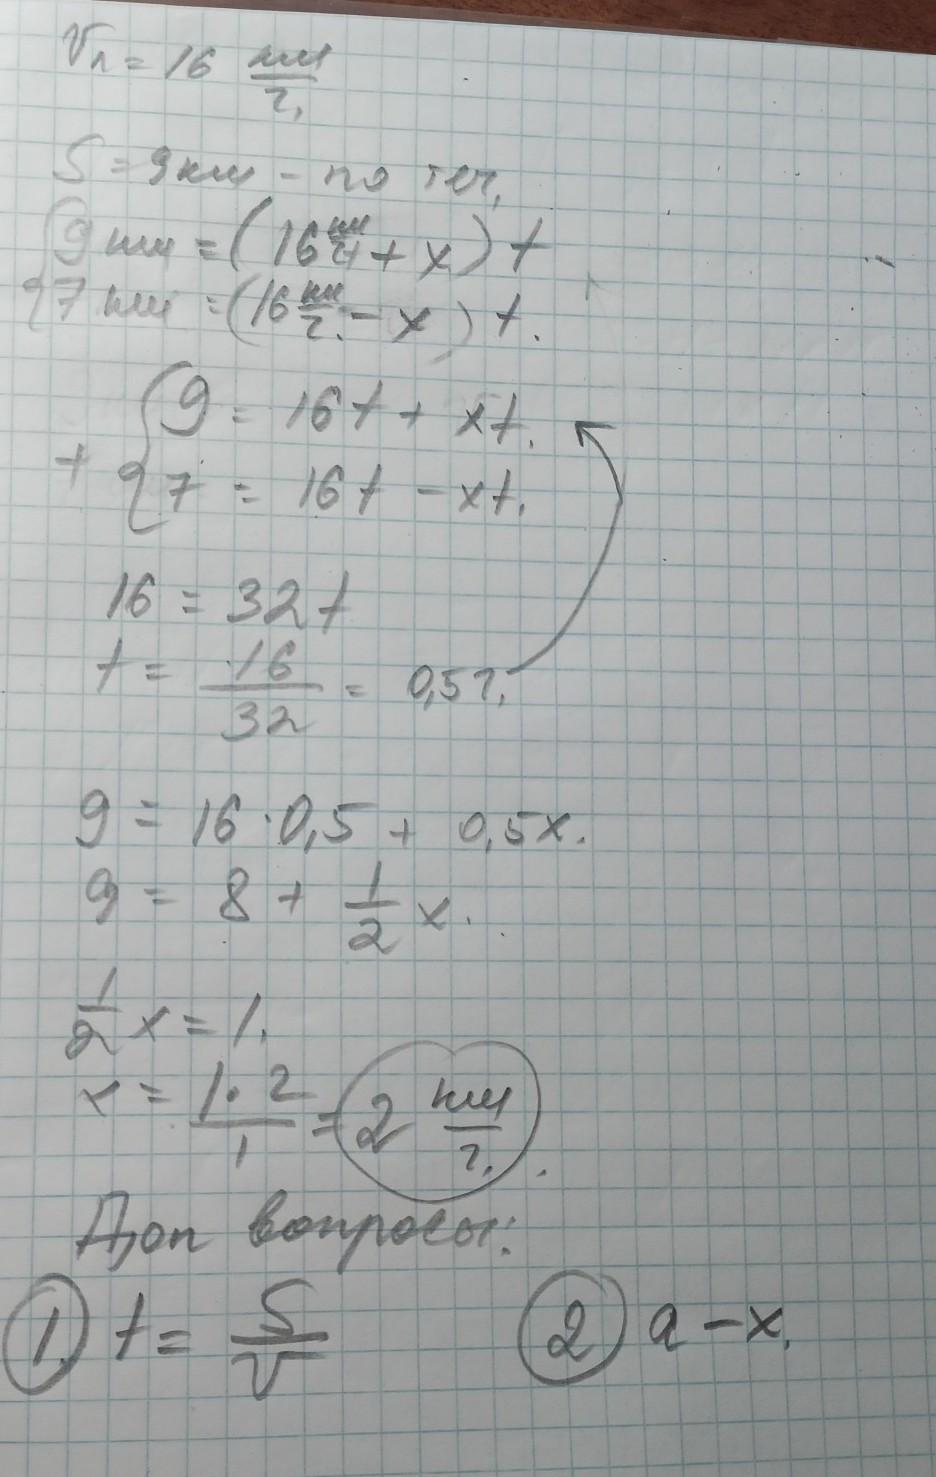 Vл = 16 км/ч.
S = 9 км - по теч.
{ 9 км = (16 км/ч + x) t
7 км = (16 км/ч. - x) t.
+ { 9 = 16t + xt.
7 = 16t - xt.
16 = 32t
t = 16/32 = 0,5 ч.
9 = 16 · 0,5 + 0,5x.
9 = 8 + 1/2 x.
1/2 x = 1.
x = 1·2/1 = 2 км/ч.
Доп вопросы:
1. t = S/V 2 a - x.